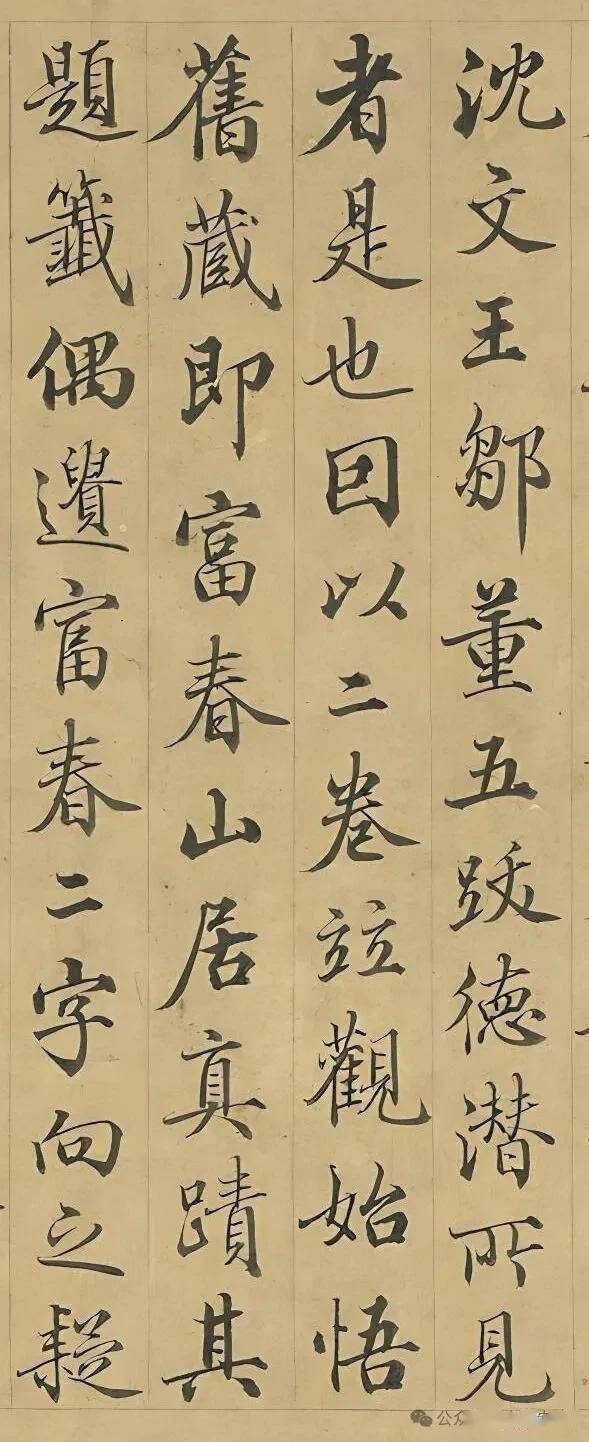 沈文王鄒董五跋德潛所見
者是也因以二卷竝觀始悟
舊藏即富春山居真蹟其
題籤偶遺富春二字向之疑
公众